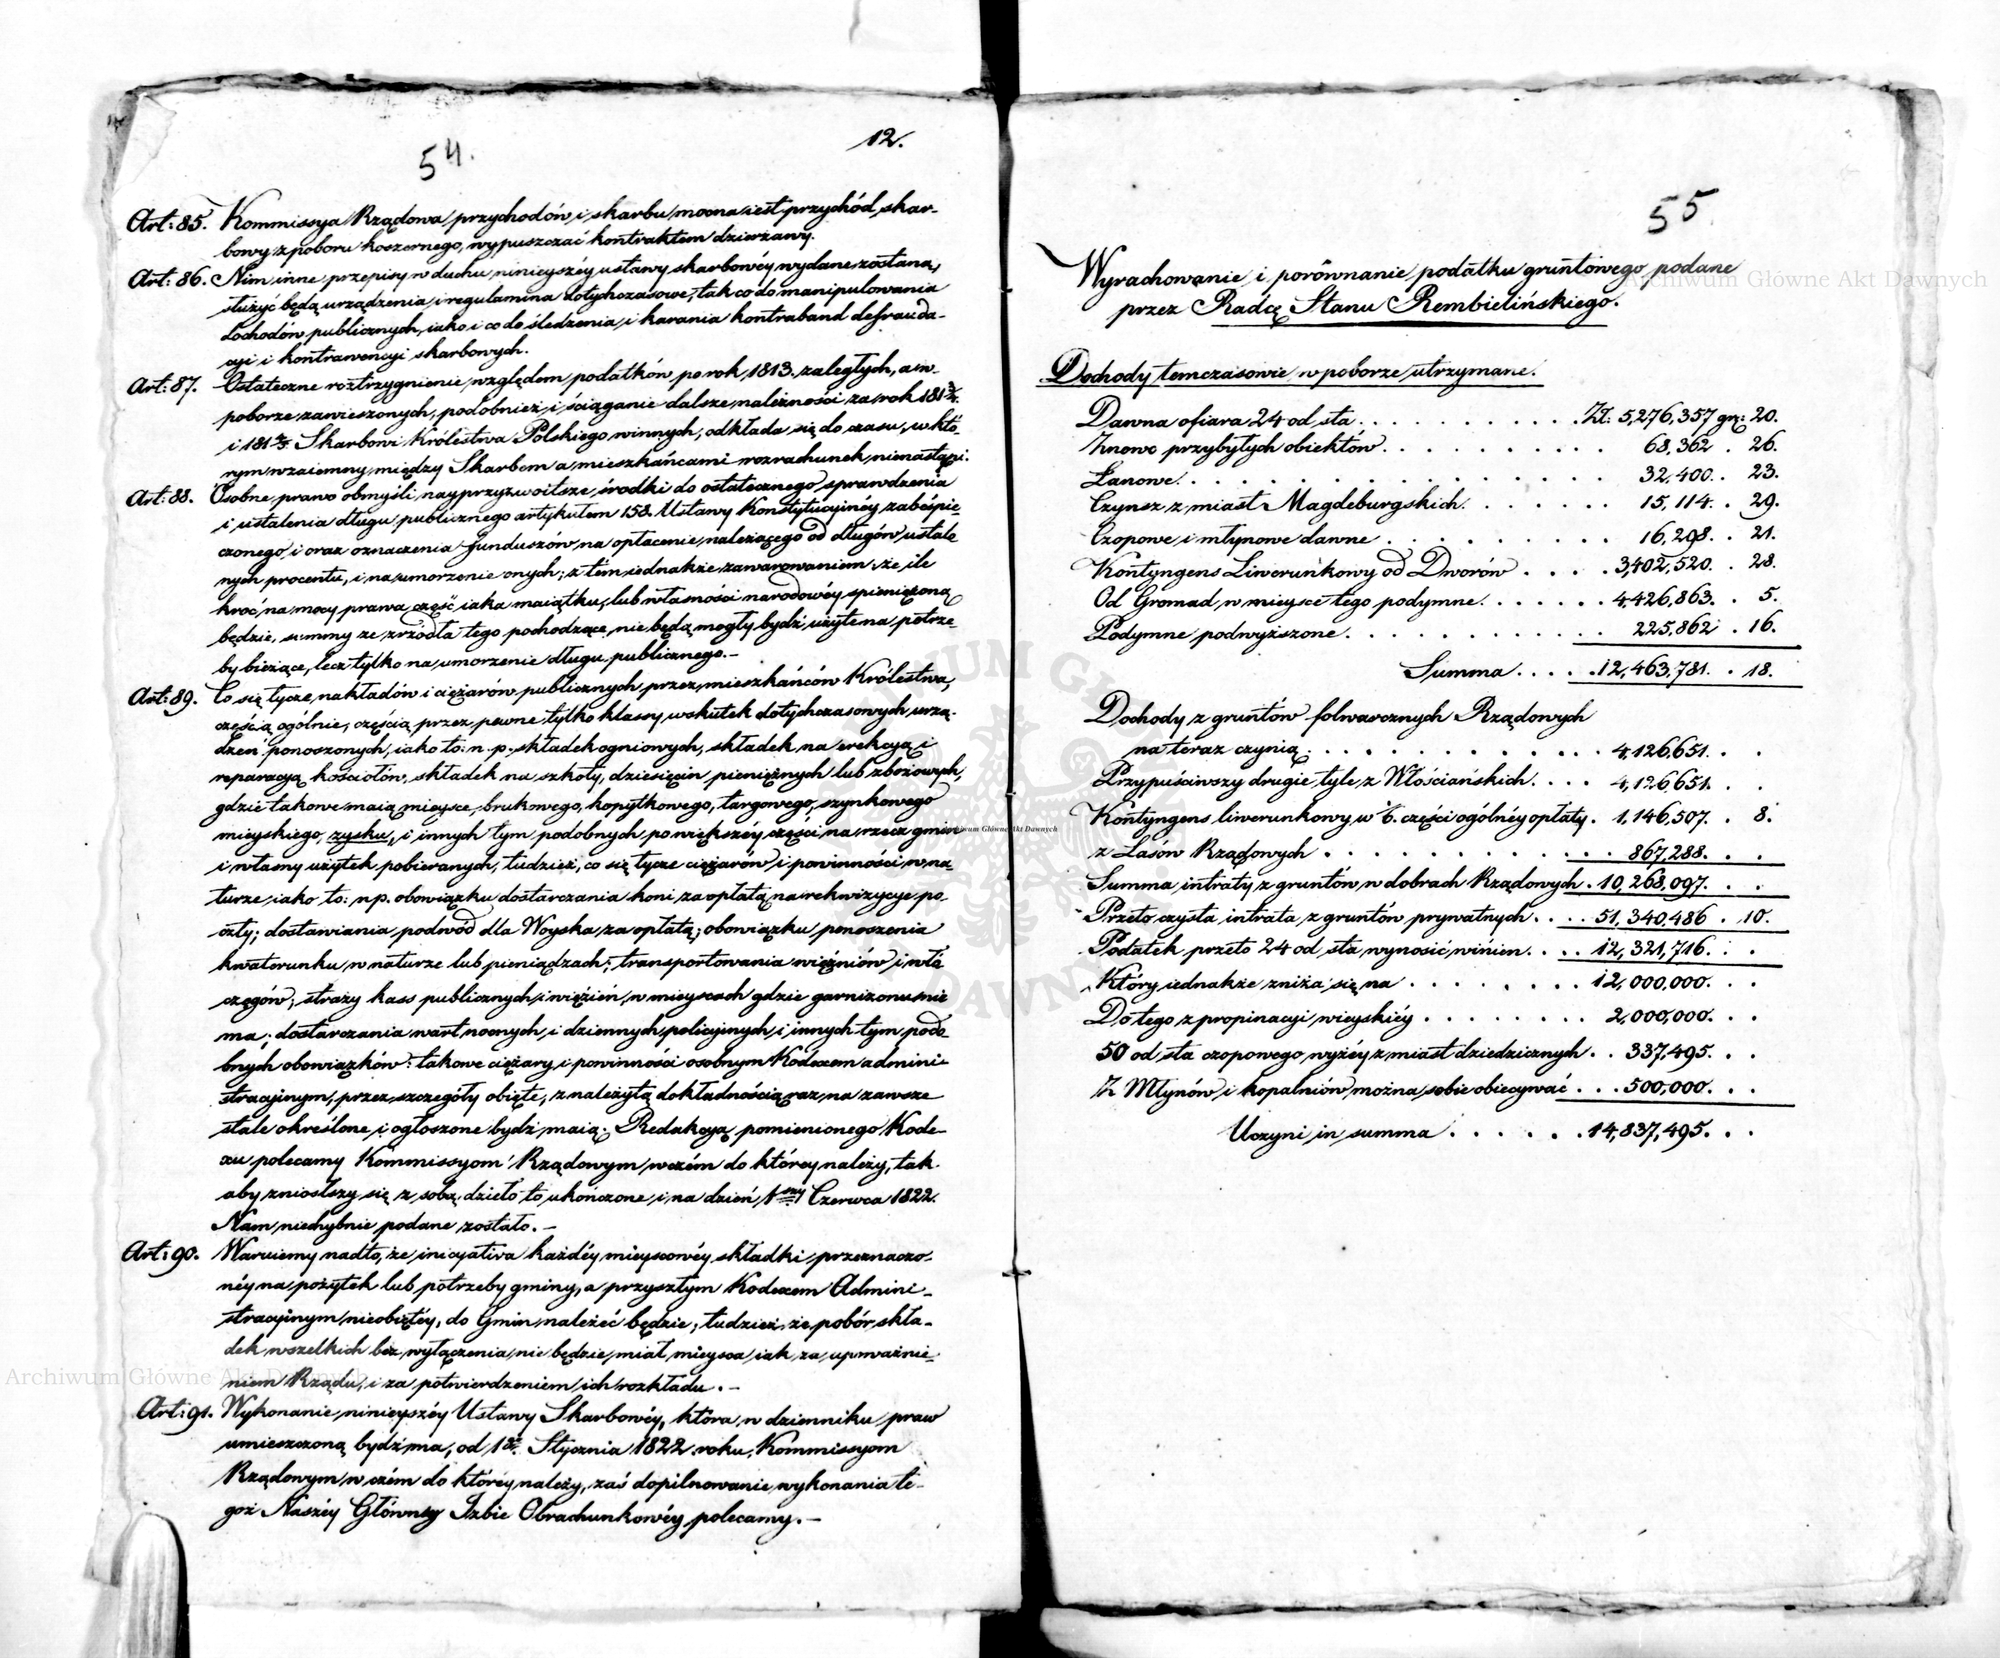 54.
12.
Art: 85. Kommissya Rządowa przychodów i skarbu mocna iest przychód skar-
bowy z poboru koszernego, wypuszczać kontraktem dzierżawy.
Art: 86. Nim inne przepisy w duchu ninieyszéy ustawy skarbowéy wydane zostaną,
służyć będą urządzenia i regulamina dotychczasowe, tak co do manipulowania
dochodów publicznych, iako i co do śledzenia i karania kontraband defrauda-
cyi i kontrawencyi skarbowych.
Art: 87. Ostateczne roztrzygnienie względem podatków po rok 1813. zaległych, a w
poborze zawieszonych, podobnież i ściąganie dalsze należności za rok 181¾.
i 181⅘ Skarbowi Królestwa Polskiego winnych, odkłada się do czasu, w któ-
rym wzaiemny między Skarbem a mieszkańcami rozrachunek nienastąpi.
Art: 88. Osobne prawo obmyśli nayprzyzwoitsze środki do ostatecznego sprawdzenia
i ustalenia długu publicznego artykułem 158. Ustawy Konstytucyinéy zabéśpie
czonego i oraz oznaczenia funduszów na opłacenie należącego od długów ustalo
nych procentu, i na umorzenie onych; z tém iednakże zawarowaniem że ile
kroć na mocy prawa część iaka maiątku, lub własności narodowéy spieniężoną
będzie, summy ze zrzódła tego pochodzące, nie będą mogły bydź użyte na potrze-
by bieżące, lecz tylko na umorzenie długu publicznego.—
Art: 89. Co się tycze nakładów i ciężarów publicznych przez mieszkańców Królestwa,
częścią ogólnie, częścią przez pewne tylko klassy w skutek dotychczasowych urzą-
dzeń ponoszonych, iako to: n.p. składek ogniowych, składek na erekcyą i
reparacyą kościołów, składek na szkoły, dziesięcin pieniężnych lub zbożowych,
gdzie takowe maią mieysce, brukowego, kopytkowego, targowego, szynkowego
mieyskiego, zysku, i innych tym podobnych po większéy części na rzecz gmin
i własny użytek pobieranych, tudzież, co się tycze ciężarów i powinności w na-
turze iako to: np. obowiązku dostarczania koni za opłatą na rekwizycye po-
czty; dostawiania podwód dla Woyska za opłatą; obowiązku ponoszenia
kwaterunku w naturze lub pieniądzach; transportowania więźniów i włó
częgów; straży kass publicznych i więzień w mieyscach gdzie garnizonu nie
ma; dostarczania wart nocnych i dziennych policyjnych i innych tym podo
bnych obowiązków: takowe ciężary i powinności osobnym Kodexem admini-
stracyinym, przez szczegóły obięte, z należytą dokładnością raz na zawsze
stale określone i ogłoszone bydź maią. Redakcyą pomienionego Kode-
xu polecamy Kommissyom Rządowym w czém do którey należy, tak
aby zniosłszy się z sobą dzieło to ukończone i na dzień 1szy Czerwca 1822.
Nam niechybnie podane zostało.—
Art: 90. Waruiemy nadto, że inicyativa każdéy mieyscowéy składki przeznaczo-
néy na pożytek lub potrzeby gminy, a przyszłym Kodexem Admini-
stracyinym nieobiętéy, do Gmin należéć będzie; tudzież że pobór skła-
dek wszelkich bez wyłączenia nie będzie miał mieysca iak za upoważnie-
niem Rządu, i za potwierdzeniem ich rozkładu.—
Art: 91. Wykonanie ninieyszéy Ustawy Skarbowéy, która w dzienniku praw
umieszczoną bydź ma, od 1go. Stycznia 1822 roku, Kommissyom
Rządowym w czém do któréy należy, zaś dopilnowanie wykonania te-
goż Naszéy Głównéy Izbie Obrachunkowéy polecamy.—
55.
Wyrachowanie i porównanie podatku gruntowego podane
przez Radcę Stanu Rembielińskiego.
Dochody temczasowie w poborze utrzymane.
Dawna ofiara 24 od sta . . . . . . . . . . Zł: 5,276,357 gr: 20.
Znowo przybyłych obiektów . . . . . . . . . . 68,362 . 26.
Łanowe . . . . . . . . . . . . . . 32,400 . . 23.
Czynsz z miast Magdeburgskich . . . . . . . 15,114 . . 29.
Czopowe i młynowe dawne . . . . . . . . . 16,298 . . 21.
Kontyngens Liwerunkowy od Dworów . . . . 3,402,520 . . 28.
Od Gromad w mieysce tego podymne . . . . . . 4,426,863 . . 5.
Podymne podwyższone . . . . . . . . . . . 225,862 . 16.
Summa . . . . . 12,463,781. . 18.
Dochody z gruntów folwarcznych Rządowych
na teraz czynią . . . . . . . . . . . . . 4,126,651. . .
Przypuściwszy drugie tyle z Włościańskich . . . . 4,126,651. . .
Kontyngens liwerunkowy w 6. części ogólnéy opłaty . 1,146,507. . 8.
z Lasów Rządowych . . . . . . . . . . . . 867,288. . .
Summa intraty z gruntów w dobrach Rządowych . 10,268,097. . .
Przeto czysta intrata z gruntów prywatnych . . . . 51,340,486 . 10.
Podatek przeto 24 od sta wynosić winien . . . . 12,321,716. . .
Który iednakże zniża się na . . . . . . . . 12,000,000. . .
Do tego z propinacyi wieyskiéy . . . . . . . . 2,000,000. . .
50 od sta czopowego wyżéy z miast dziedzicznych . . 337,495. . .
Z Młynów i kopalniów można sobie obiecywać . . . 500,000. . .
Uczyni in summa . . . . . . 14,837,495. . .
Archiwum Główne Akt Dawnych
Archiwum Główne Akt Dawnych
Archiwum Główne Akt Dawnych